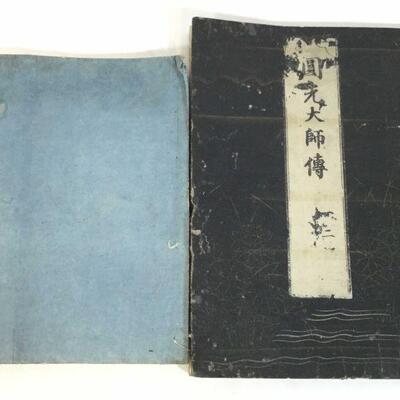 圓光大師傳
二